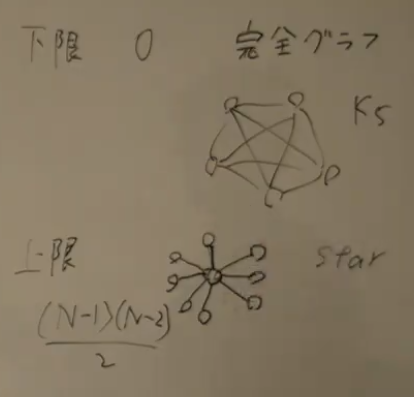 下限 0 完全グラフ
K5
上限 star
(N-1)(N-2)
2